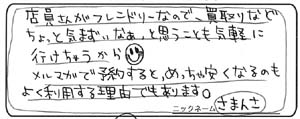 店員さんがフレンドリーなので、買取りなど
ちょっと気まずいなぁ、と思うことも気軽に
行けちゃうから
メルマガで予約すると、めっちゃ安くなるのも
よく利用する理由でもあります。
ニックネーム さまんさ